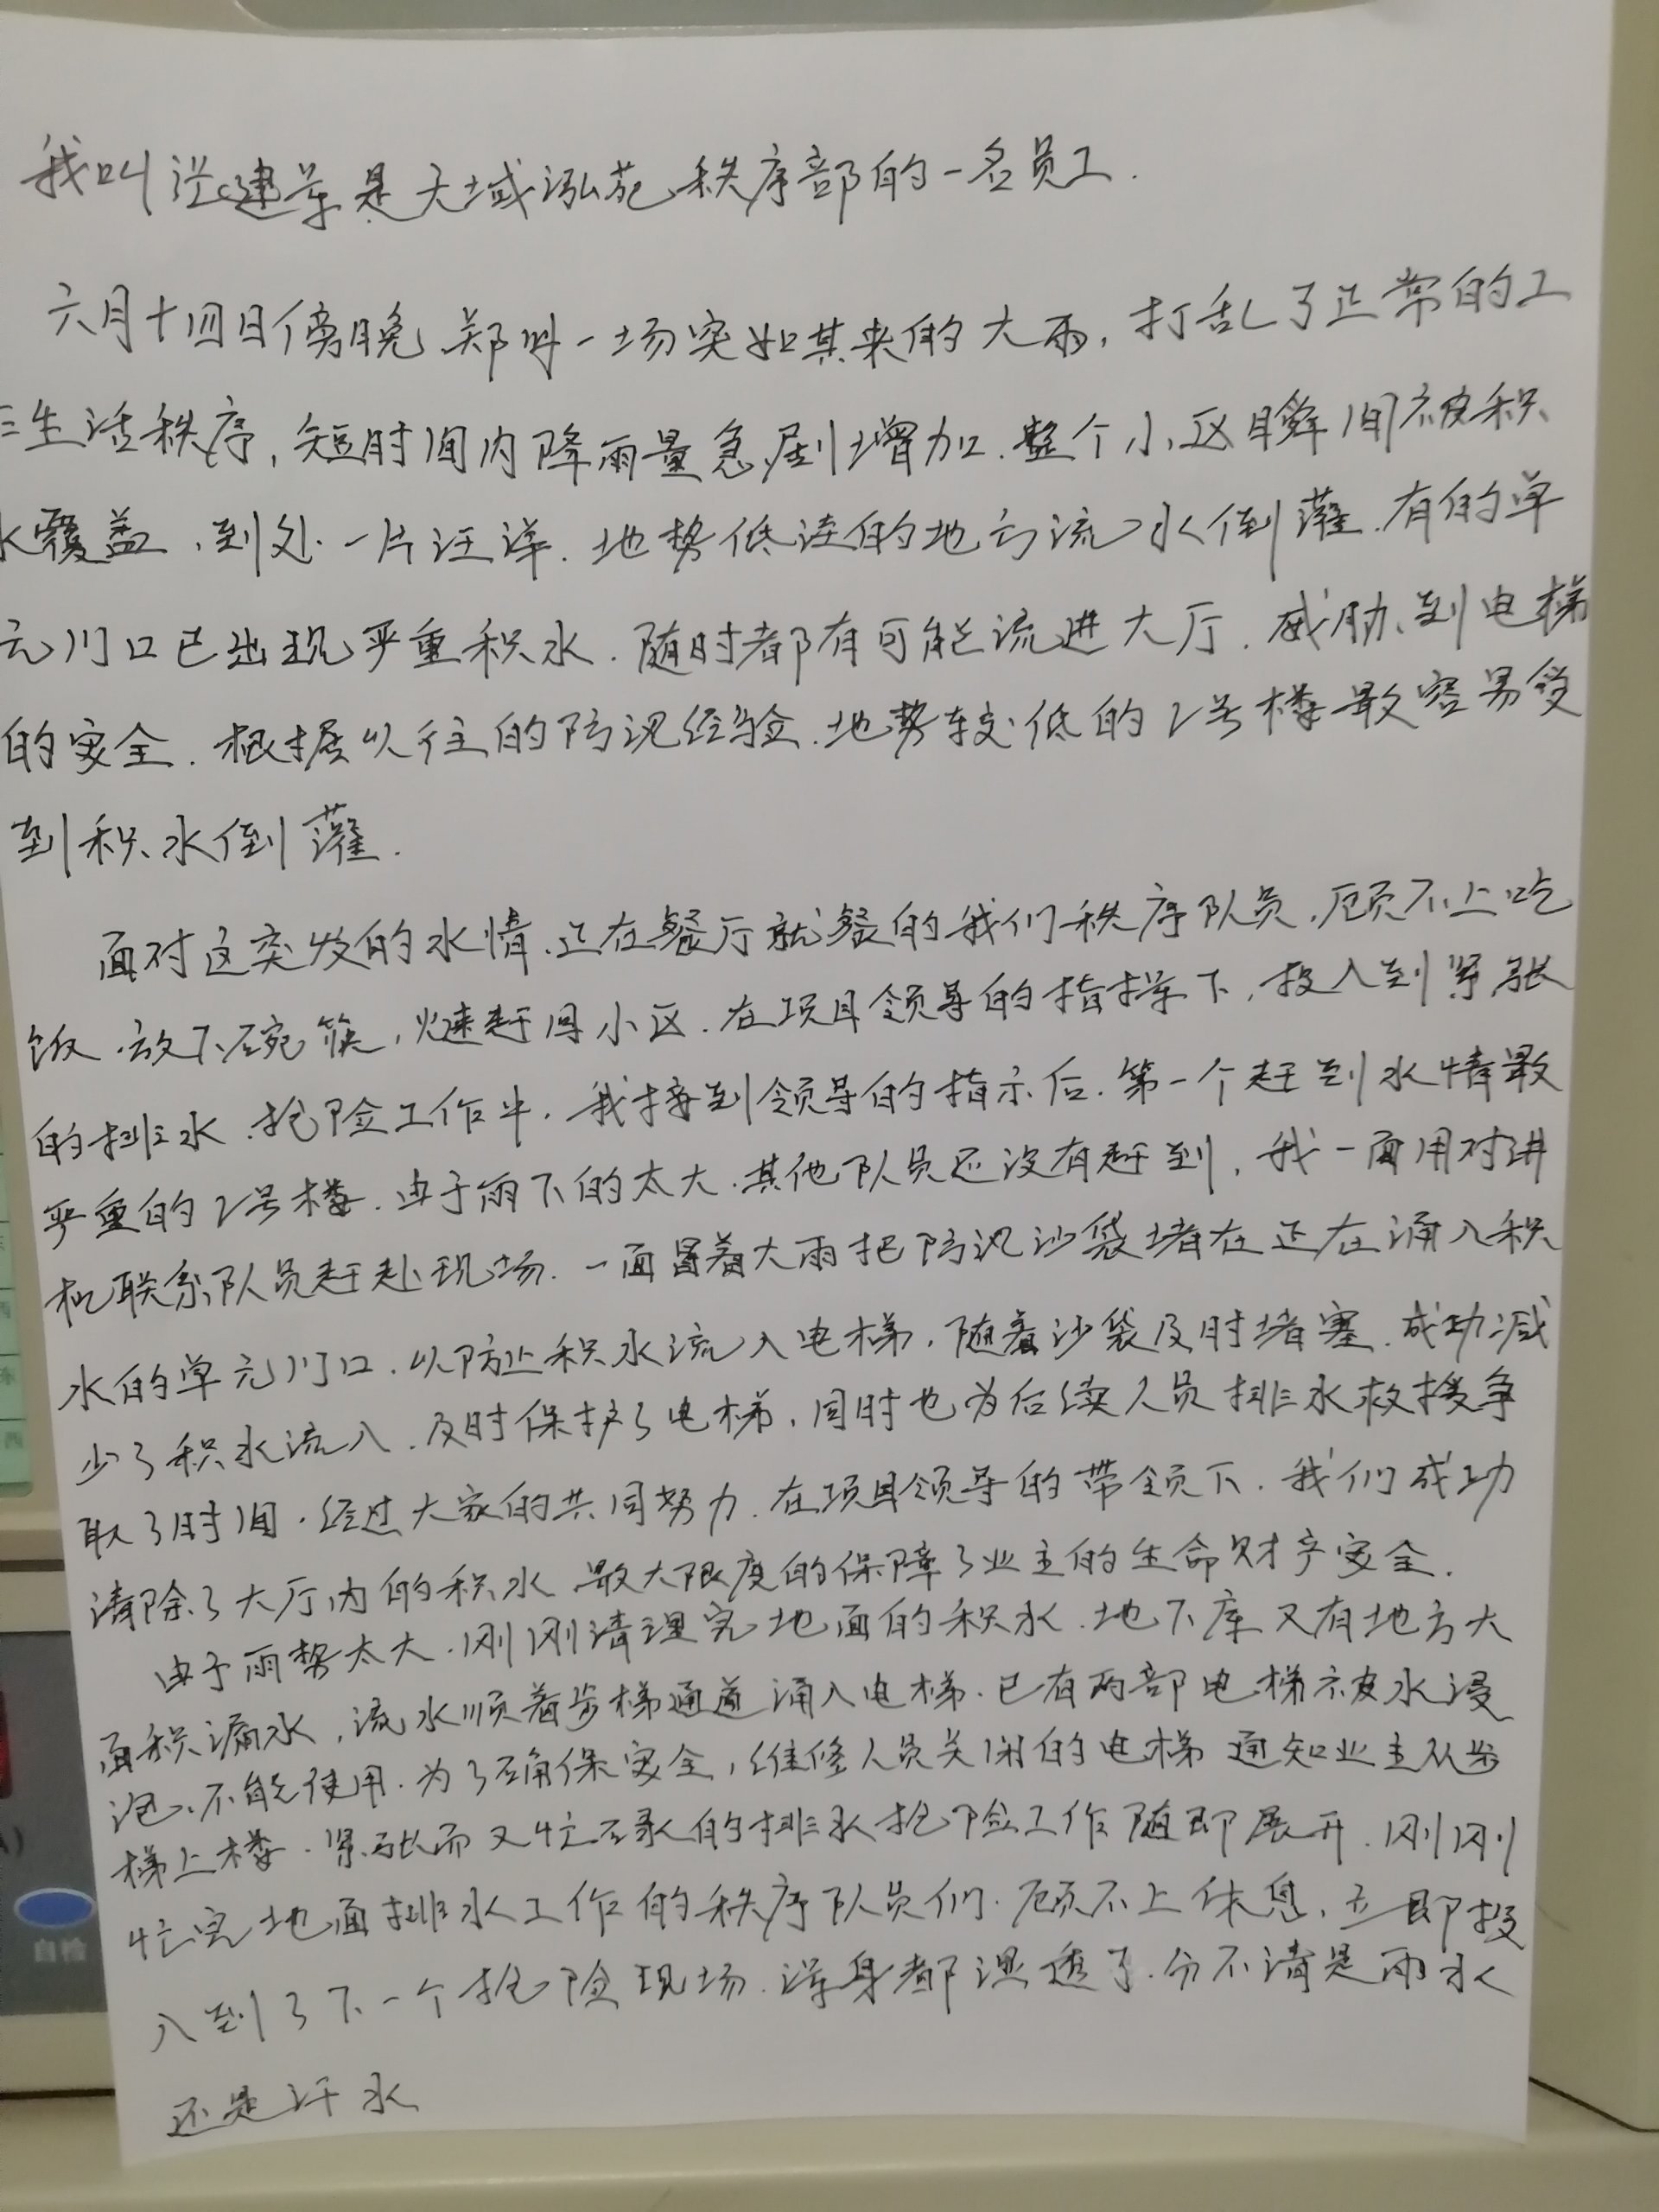 我叫 建军是天域泓苑秩序部的一名员工.
六月十四日傍晚.郑州一场突如其来的大雨,打乱了正常的工
生活秩序,短时间内降雨量急剧增加.整个小区瞬间被积
水覆盖.到处一片汪洋.地势低洼的地方流水倒灌.有的单
元门口已出现严重积水.随时都有可能流进大厅.威胁到电梯
的安全.根据以往的防汛经验.地势较低的2号楼最容易受
到积水倒灌.
面对这突发的水情.正在餐厅就餐的我们秩序队员.顾不上吃
饭.放下碗筷,火速赶回小区.在项目领导的指挥下,投入到紧张
的排水.抢险工作中.我接到领导的指示后.第一个赶到水情最
严重的2号楼.由于雨下的太大.其他队员还没有赶到,我一面用对讲
机联系队员赶赴现场.一面冒着大雨把防汛沙袋堵在正在涌入积
水的单元门口.以防止积水流入电梯.随着沙袋及时堵塞.成功减
少了积水流入.及时保护了电梯,同时也为后续人员排水救援争
取了时间.经过大家的共同努力.在项目领导的带领下.我们成功
清除了大厅内的积水.最大限度的保障了业主的生命财产安全.
由于雨势太大.刚刚清理完地面的积水.地下库又有地方大
面积漏水,流水顺着步梯通道涌入电梯.已有两部电梯被水浸
泡.不能使用.为了确保安全,维修人员关闭的电梯通知业主从步
梯上楼.紧张而又忙碌的排水抢险工作随即展开.刚刚
忙完地面排水工作的秩序队员们.顾不上休息.立即投
入到了下一个抢险现场.浑身都湿透了.分不清是雨水
还是汗水
自检
西
东
西